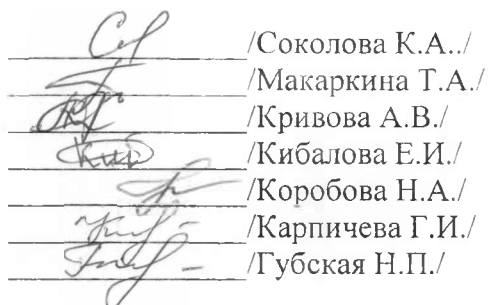 /Соколова К.А../
/Макаркина Т.А./
/Кривова А.В./
/Кибалова Е.И./
/Коробова Н.А./
/Карпичева Г.И./
/Губская Н.П./